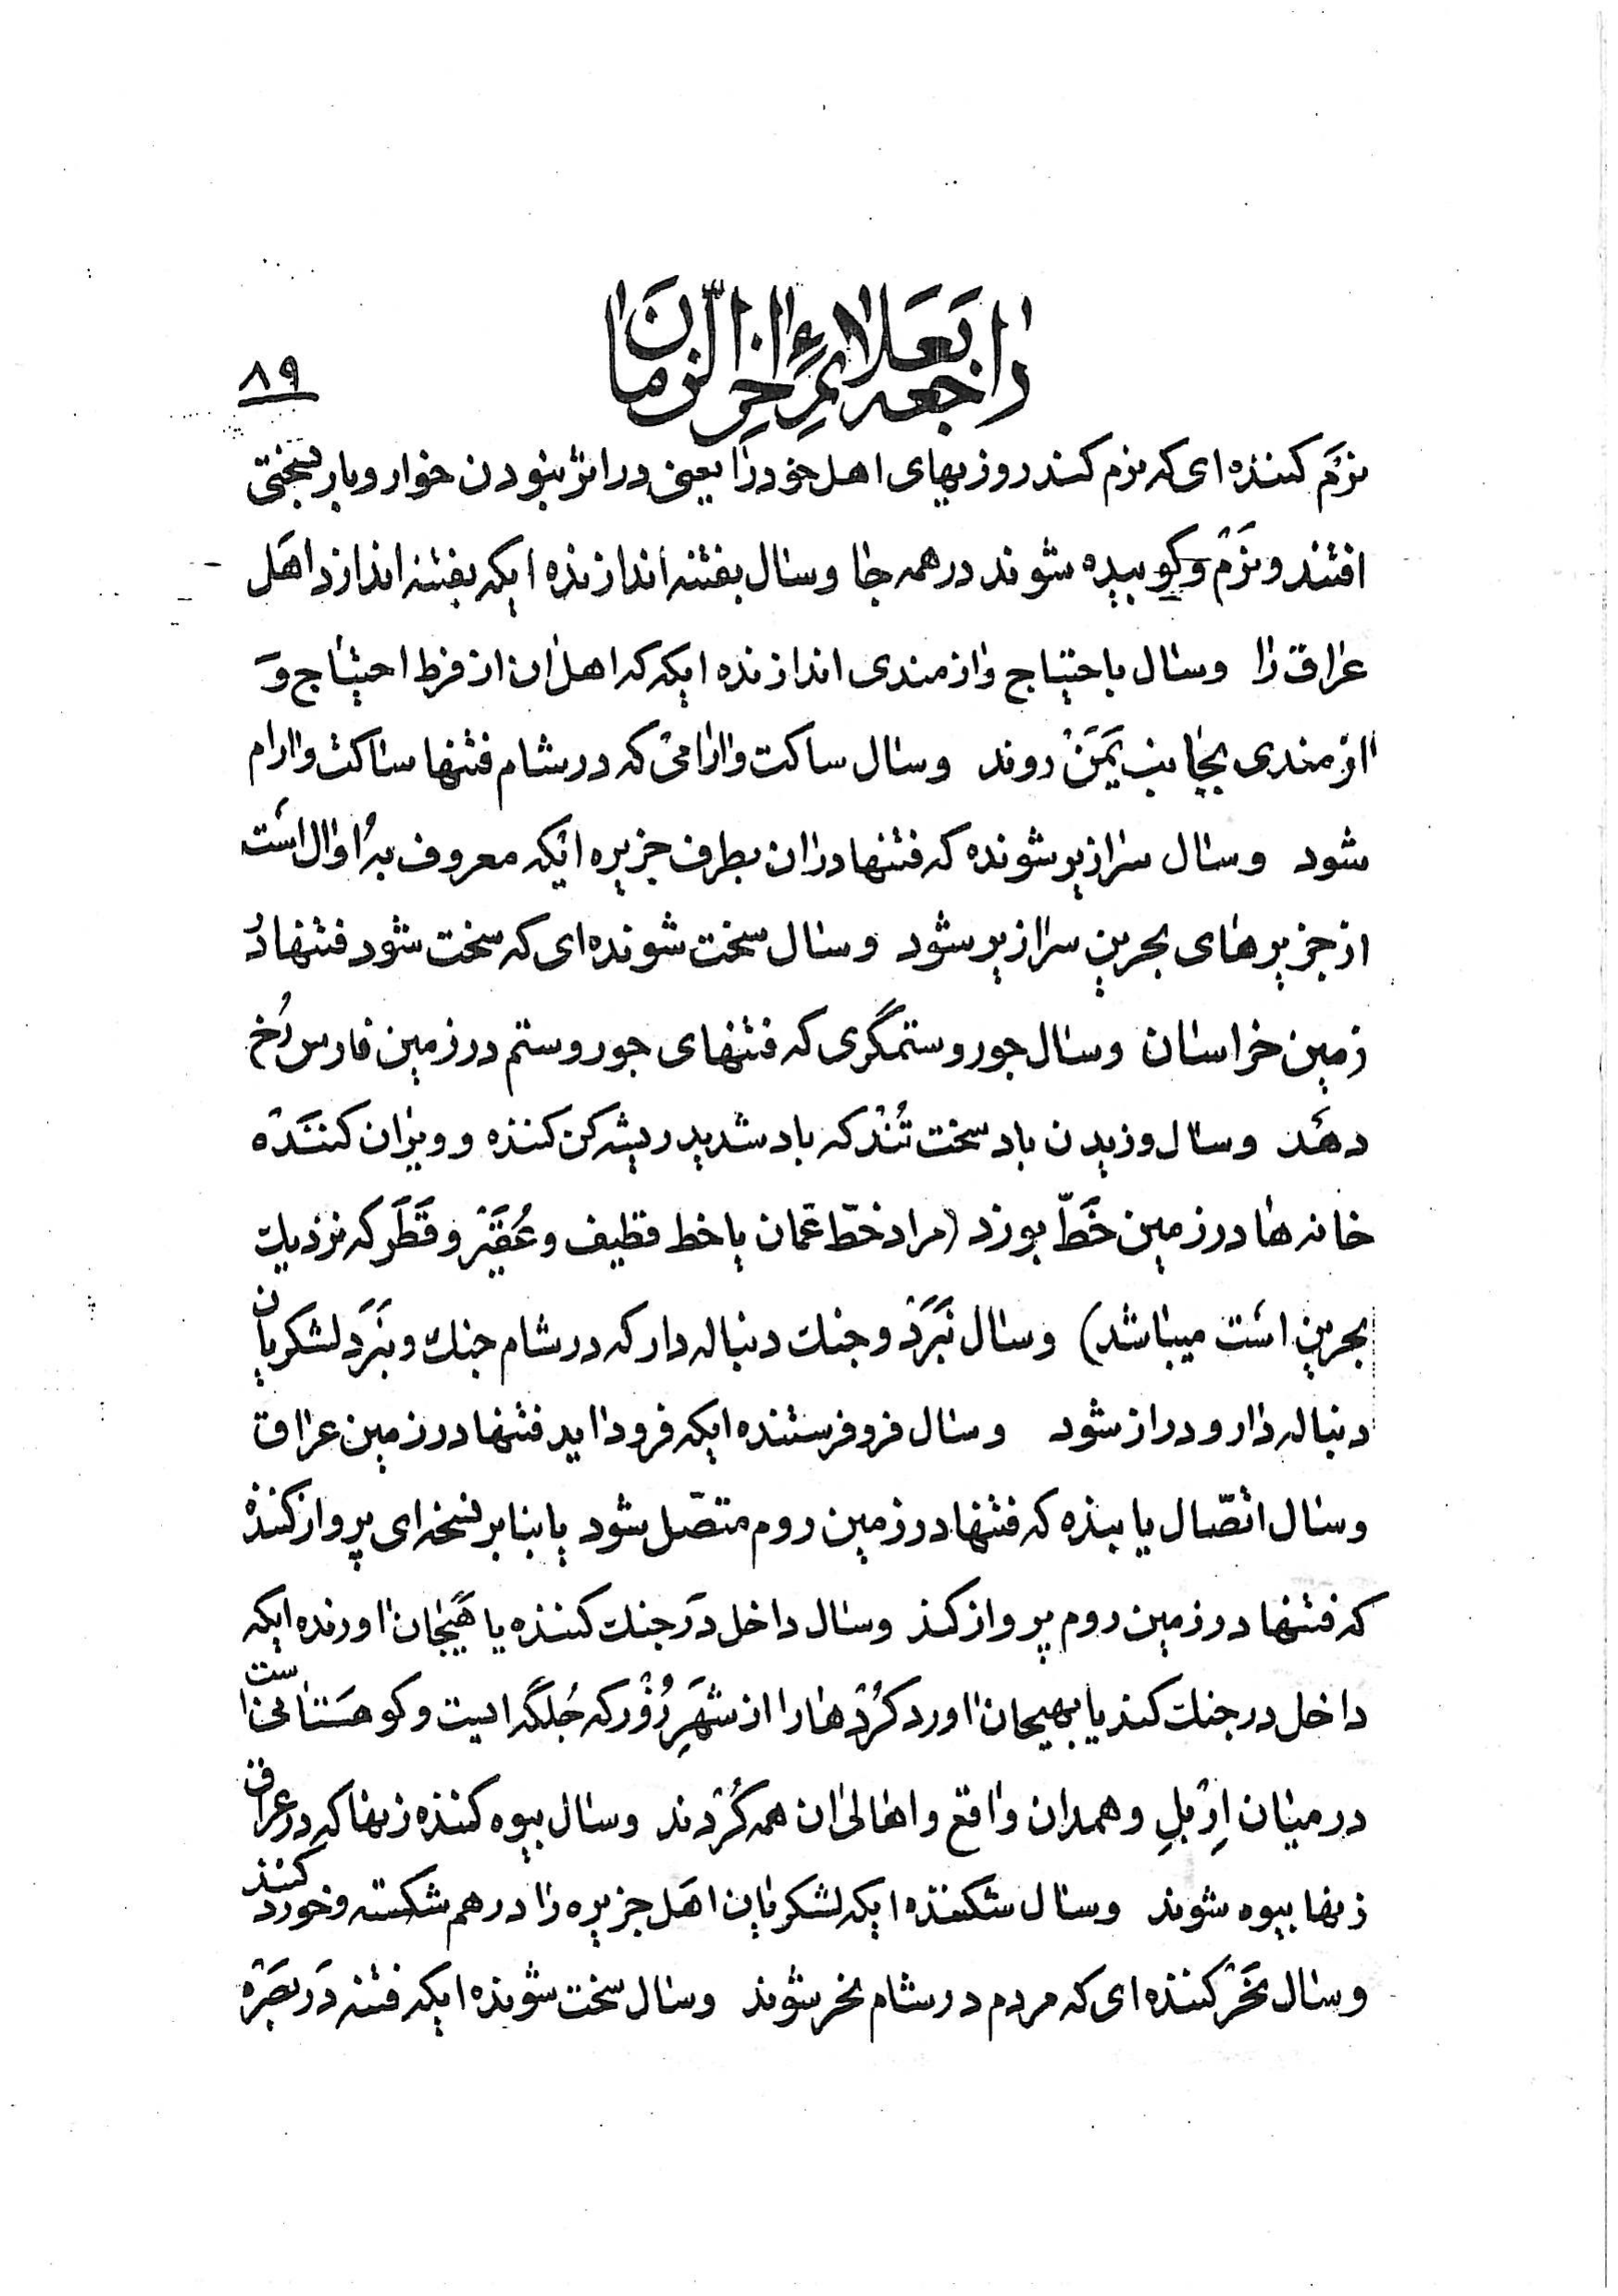 راجعه بعلائم اخر الزمان
۸۹
نرم کننده‌ای که نرم کند روزیهای اهل خود را یعنی در اثر نبودن خوار و بار بسختی
افتند و نرم و کوبیده شوند در همه جا و سال بفتنه اندازنده ایکه بفتنه اندازد اهل
عراق را و سال باحتیاج و ازمندی اندازنده ایکه که اهل ان از فرط احتیاج و
ازمندی بجانب یَمَنْ روند و سال ساکت و ارامی که در شام فتنها ساکت و ارام
شود و سال سرازیر شونده که فتنها در ان بطرف جزیره ایکه معروف به اوال است
از جزیرهای بحرین سرازیر شود و سال سخت شونده‌ای که سخت شود فتنها در
زمین خراسان و سال جور و ستمگری که فتنهای جور و ستم در زمین فارس رُخ
دهد و سال وزیدن باد سخت تُند که باد شدید ریشه کن کننده و ویران کننده
خانه ها در زمین خَطّ بوزد (مراد خطّ عمان یا خط قطیف و عُقَیْر و قَطَر که نزدیك
بحرین است میباشد) و سال نَبَرَدْ و جنك دنباله دار که در شام جنك و نَبَرَد لشکریان
دنباله دار و دراز شود و سال فرو فرستنده ایکه فرود اید فتنها در زمین عراق
و سال اتّصال یابنده که فتنها در زمین روم متصّل شود یا بنابر نسخه‌ای پرواز کننده
که فتنها در زمین روم پرواز کند و سال داخل در جنك کننده یا هَیَجان اورنده ایکه
داخل در جنك کند یا بهیجان اورد کُرْدها را از شهَرِ زُوْر که جُلگه ایست و کوهستانی است
در میان اِرْبلِ و همدان واقع و اهالی ان همه کُرْدند و سال بیوه کننده زنها که در عراق
زنها بیوه شوند و سال شکننده ایکه لشکریان اهل جزیره را در هم شکسته و خورد کنند
و سال نَحْر کننده‌ای که مردم در شام نحر شوند و سال سخت شونده ایکه فتنه در بصَرْه